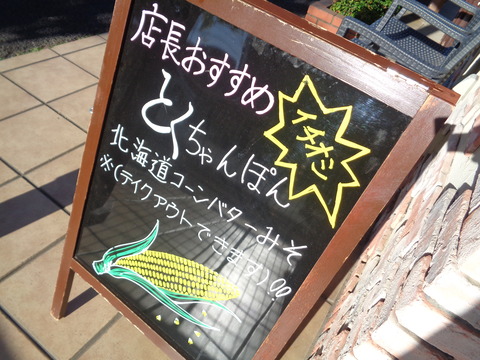 店長おすすめ
イチオシ
とくちゃんぽん
北海道コーンバターみそ
※(テイクアウトできます)